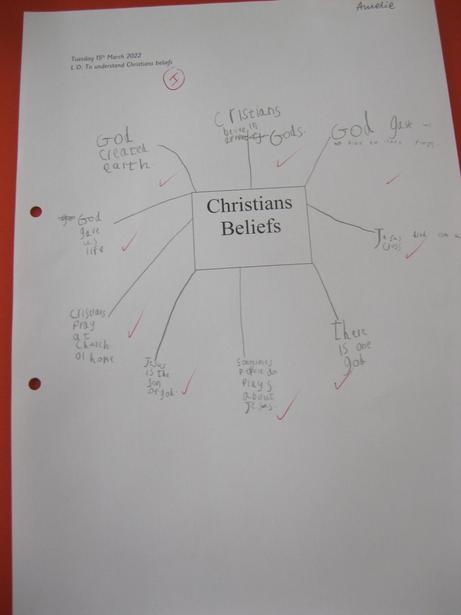 Amelie
Tuesday 15th March 2022
L.O. To understand Christians beliefs
I
Cristians
beive in
Gods.
God
created
earth
GOD gave
Christians
Beliefs
God
gave
us
life
Jesus died on a
cross
Cristians
Pray
at
Church
or home
Jesus
is the
son
of god.
Somtimes
people do
Plays
about
Jesus.
There
is one
god